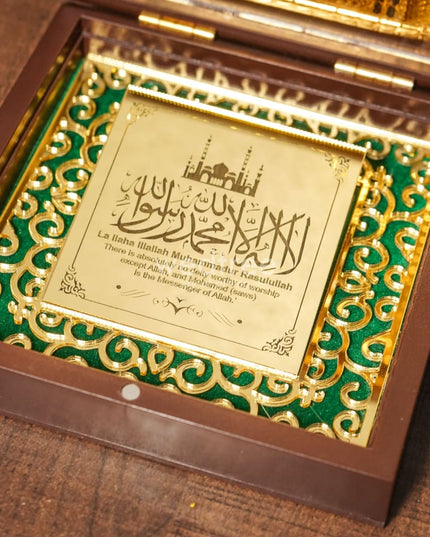 لا إله إلا الله محمد رسول الله
La ilaha illallah Muhammadur Rasulullah
There is absolutely no deity worthy of worship
except Allah, and Mohamed (saws)
is the Messenger of Allah.'